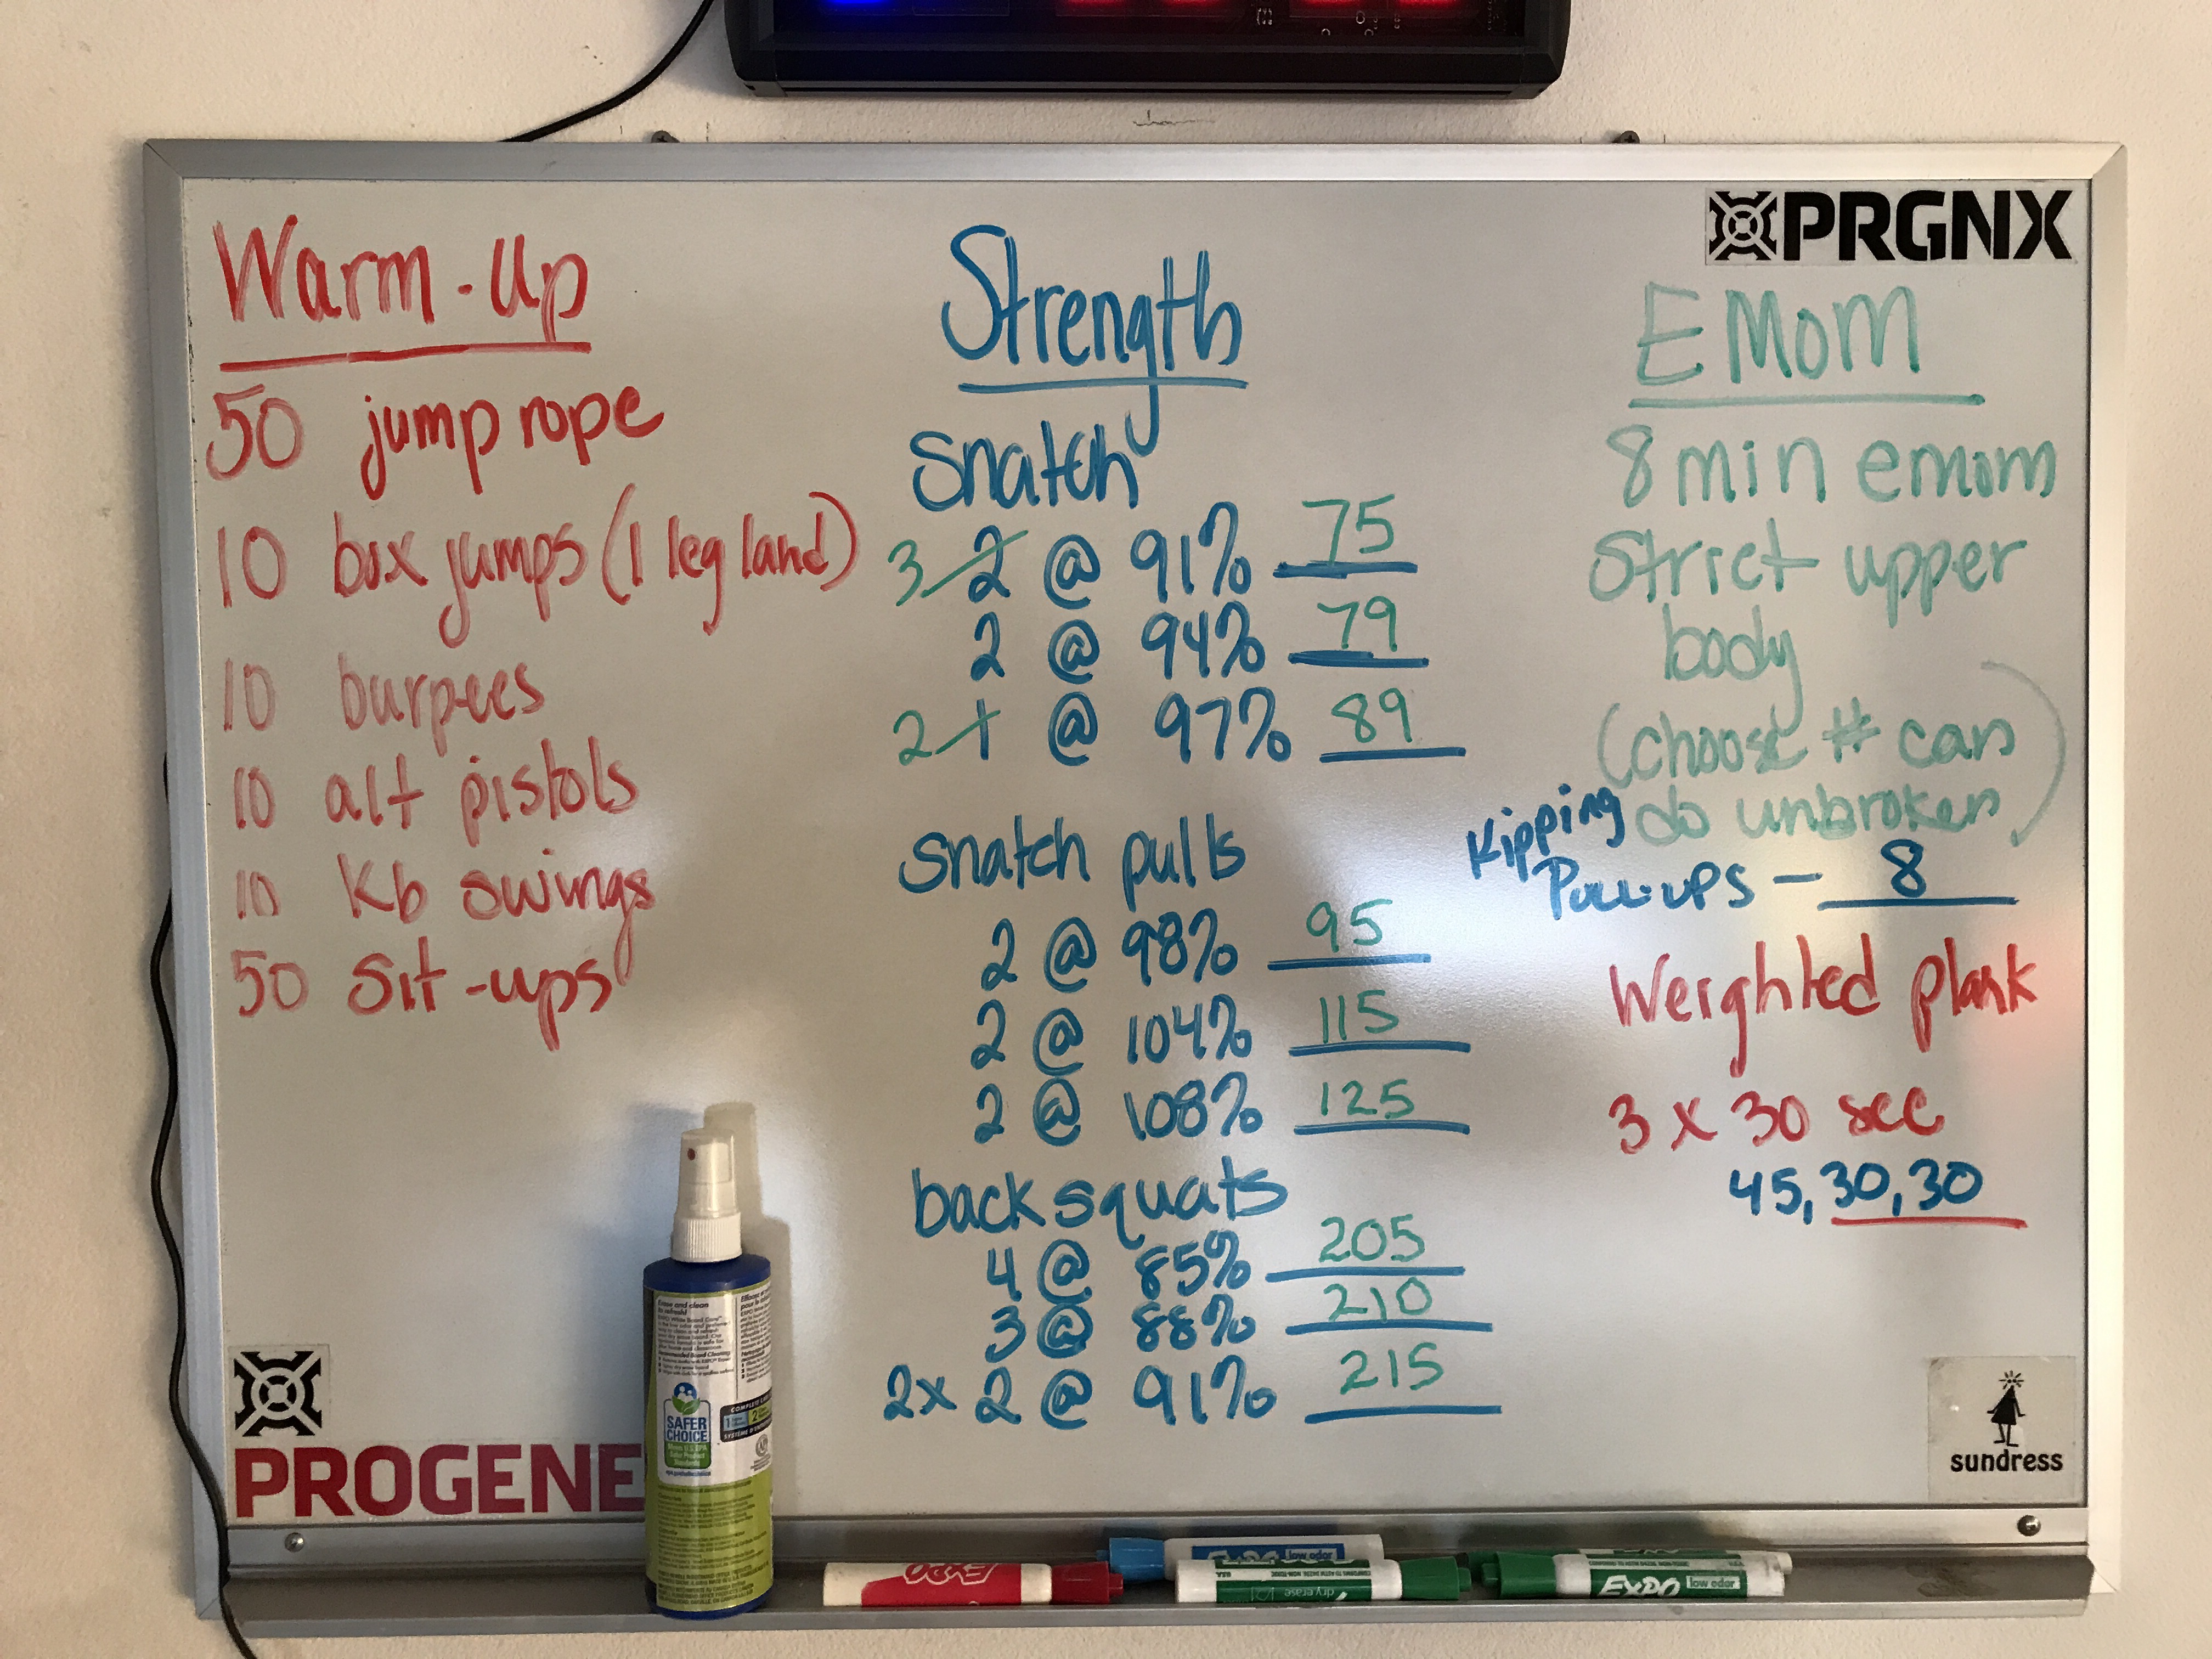 Warm-Up
50 jump rope
10 box jumps (1 leg land)
10 burpees
10 alt pistols
10 Kb swings
50 Sit-ups
Strength
Snatch
3 2 @ 91% 75
2 @ 94% 79
2 1 @ 97% 89
Snatch pulls
2 @ 98% 95
2 @ 104% 115
2 @ 108% 125
back squats
4 @ 85% 205
3 @ 88% 210
2x 2 @ 91% 215
PRGNX
EMOM
8 min emom
Strict upper
body
(choose # can
do unbroken)
Kipping
Pull-ups — 8
Weighted plank
3 x 30 sec
45, 30, 30
PROGENE
sundress
Erase and clean
SAFER
CHOICE
EXPO
EXPO low odor
dry erase
EXPO low odor